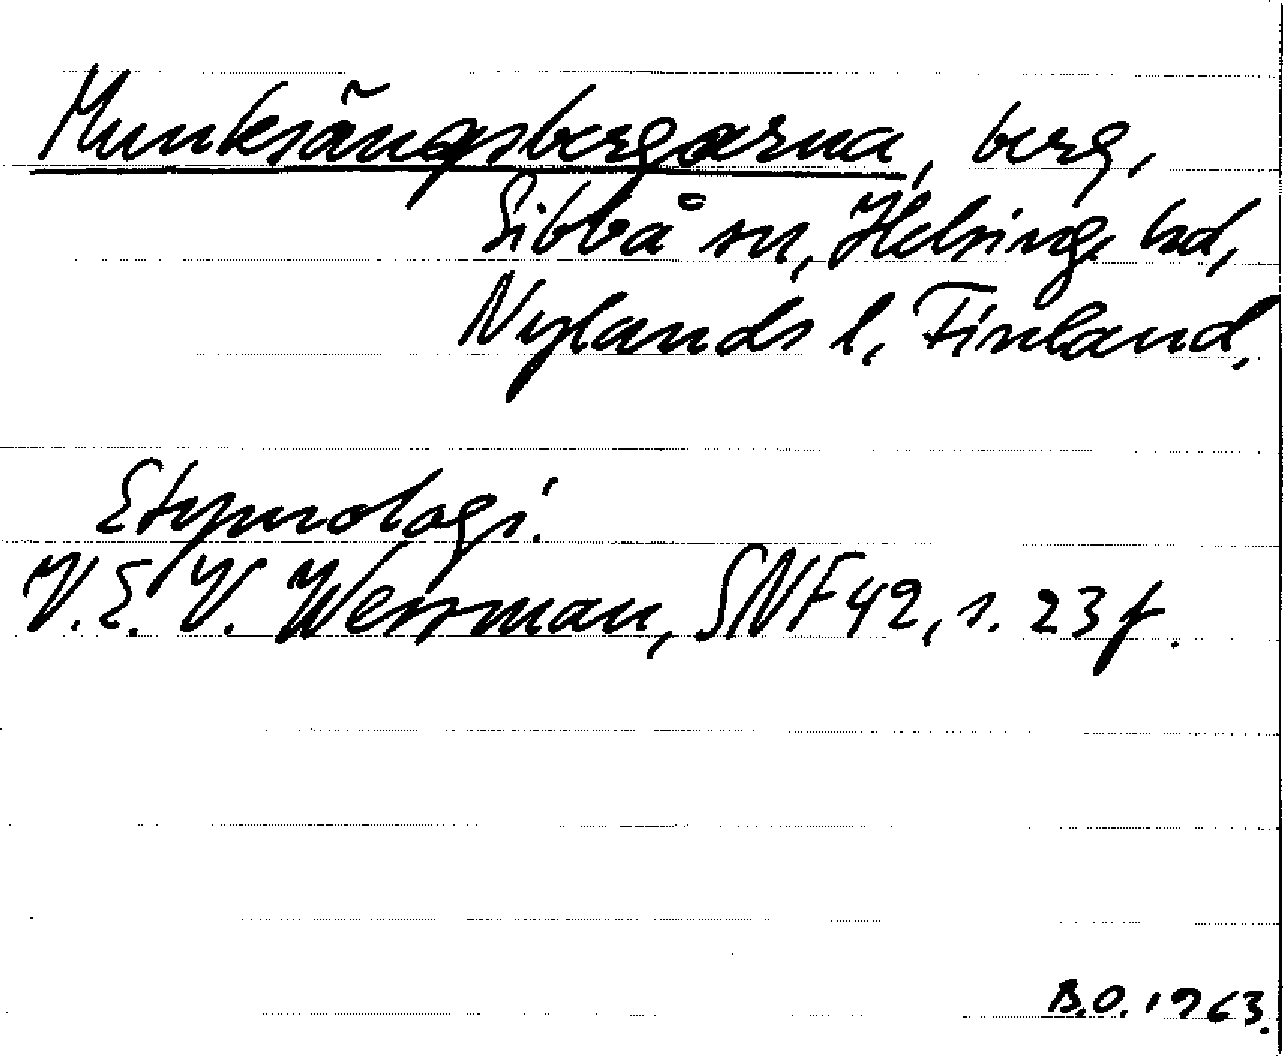 Munksängsbergarna, berg,
Sibbå sn, Helsinge hd,
Nylands l, Finland.
Etymologi.
V.E.V. Wessman, SNF 42, s. 23 f.
B.O. 1963.